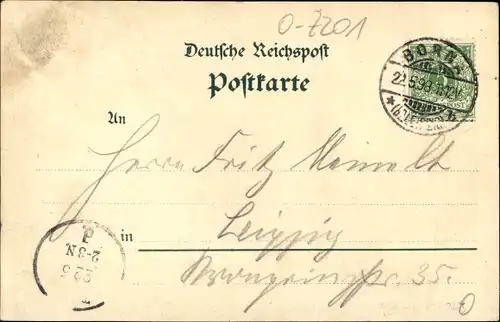 O-7201
Deutsche Reichspost
Postkarte
BORNA
22.5.98.
An
Herrn Fritz Meinelt
in Leipzig
Kronprinzstr. 35.
2-3N
22 5